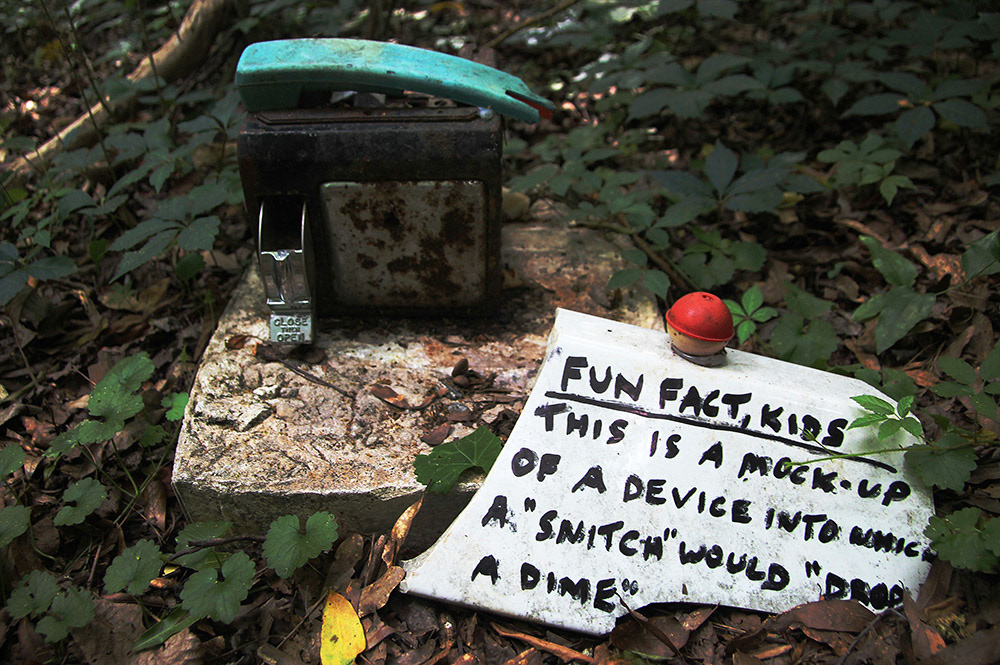 CLOSE
THEN
OPEN
FUN FACT, KIDS
THIS IS A MOCK-UP
OF A DEVICE INTO WHICH
A "SNITCH" WOULD "DROP
A DIME"